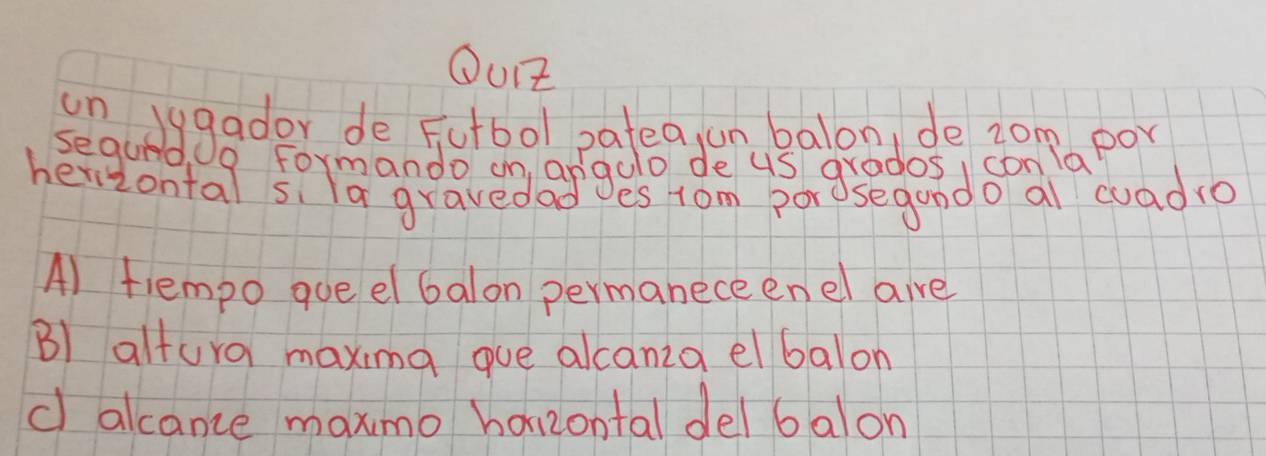 Quiz
un jugador de Futbol patea un balon, de 20m por
segundo formando un angulo de 45 grados con la
horizontal si la gravedad es 10m por segundo al cuadro
A) tiempo que el balon permanece en el aire
B) altura maxima que alcanza el balon
c) alcance maximo horizontal del balon